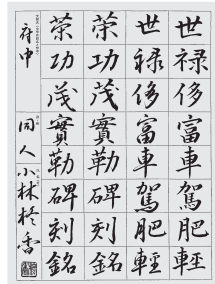 世禄侈富車駕肥輕
世禄侈富車駕肥輕
策功茂實勒碑刻銘
策功茂實勒碑刻銘
府中
同人 小林